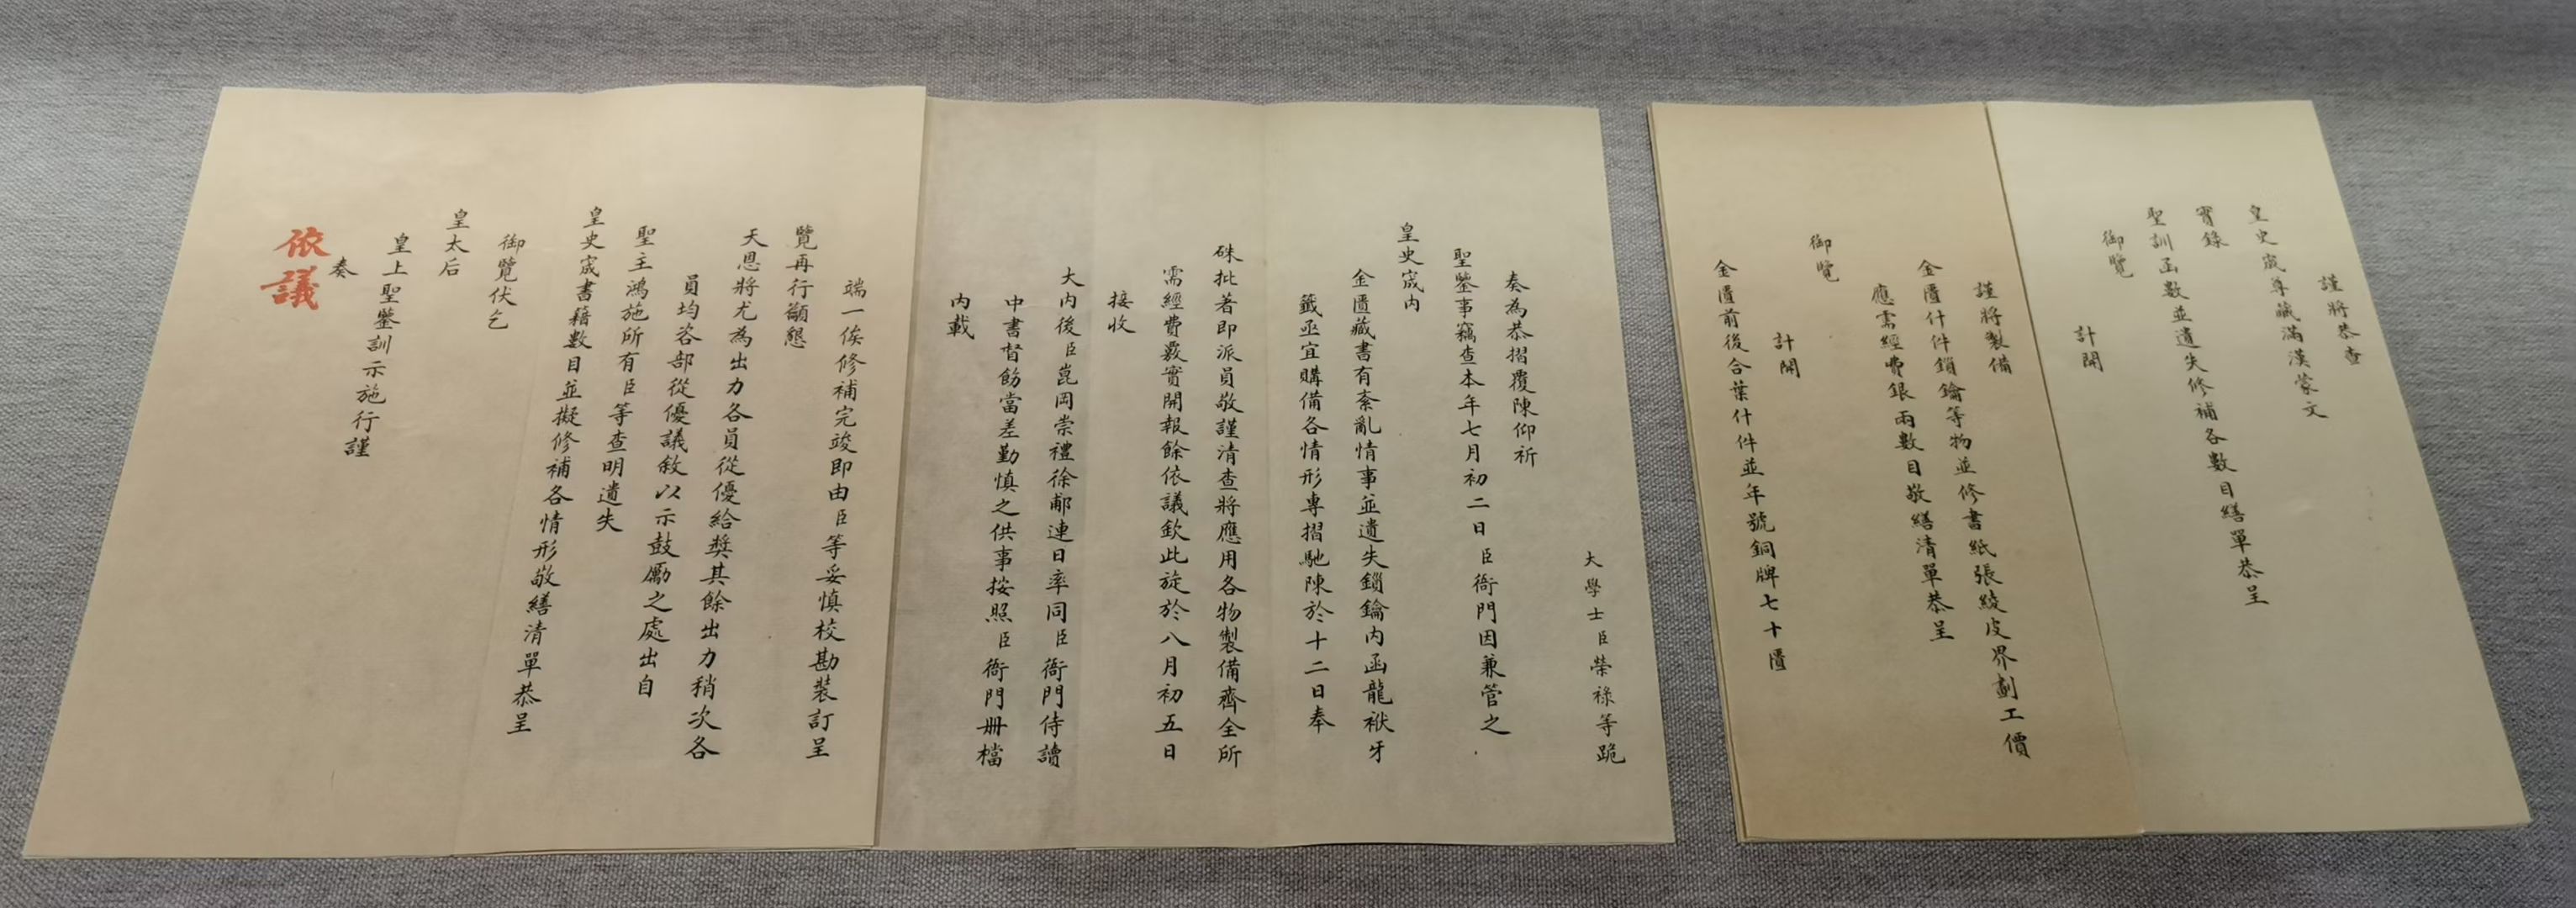 謹將恭查
皇史宬尊藏滿漢蒙文
實錄
聖訓函數並遺失修補各數目繕單恭呈
御覽
計開
謹將製備
金匱什件鎖鑰等物並修書紙張綾皮界劃工價
應需經費銀兩數目敬繕清單恭呈
御覽
計開
金匱前後合葉什件並年號銅牌七十匱
大學士臣榮祿等跪
奏為恭摺覆陳仰祈
聖鑒事竊查本年七月初二日臣衙門因兼管之
皇史宬内
金匱藏書有紊亂情事並遺失鎖鑰内函龍袱牙
籤亟宜購備各情形專摺馳陳於十二日奉
硃批著即派員敬謹清查將應用各物製備齊全所
需經費覈實開報餘依議欽此旋於八月初五日
接收
大内後臣崑岡崇禮徐郙連日率同臣衙門侍讀
中書督飭當差勤慎之供事按照臣衙門册檔
内載
端一俟修補完竣即由臣等妥慎校勘裝訂呈
覽再行籲懇
天恩將尤為出力各員從優給獎其餘出力稍次各
員均咨部從優議敘以示鼓勵之處出自
聖主鴻施所有臣等查明遺失
皇史宬書籍數目並擬修補各情形敬繕清單恭呈
御覽伏乞
皇太后
皇上聖鑒訓示施行謹
奏
依議